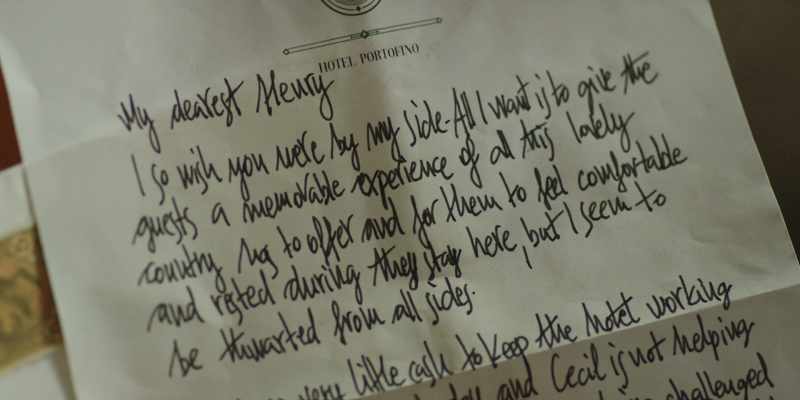 HOTEL PORTOFINO
My dearest Henry
I so wish you were by my side. All I want is to give the
guests a memorable experience of all this lovely
country has to offer and for them to feel comfortable
and rested during they stay here, but I seem to
be thwarted from all sides.
very little cash to keep the hotel working
and Cecil is not helping
challenged